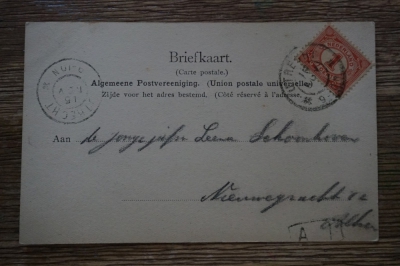 Briefkaart.
(Carte postale.)
Algemeene Postvereeniging. (Union postale universelle)
Zijde voor het adres bestemd. (Côté réservé à l'adresse.
Aan de jonge jufr Leena Schoonhoven
Nieuwegracht
Alhier